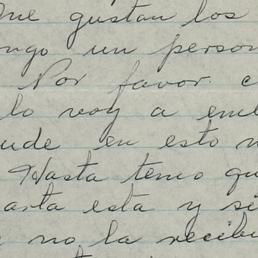 me gustan los
ongo un person
Por favor c
lo voy a em
ude en esto n
Hasta temo qu
arta esta y si
no la recibi